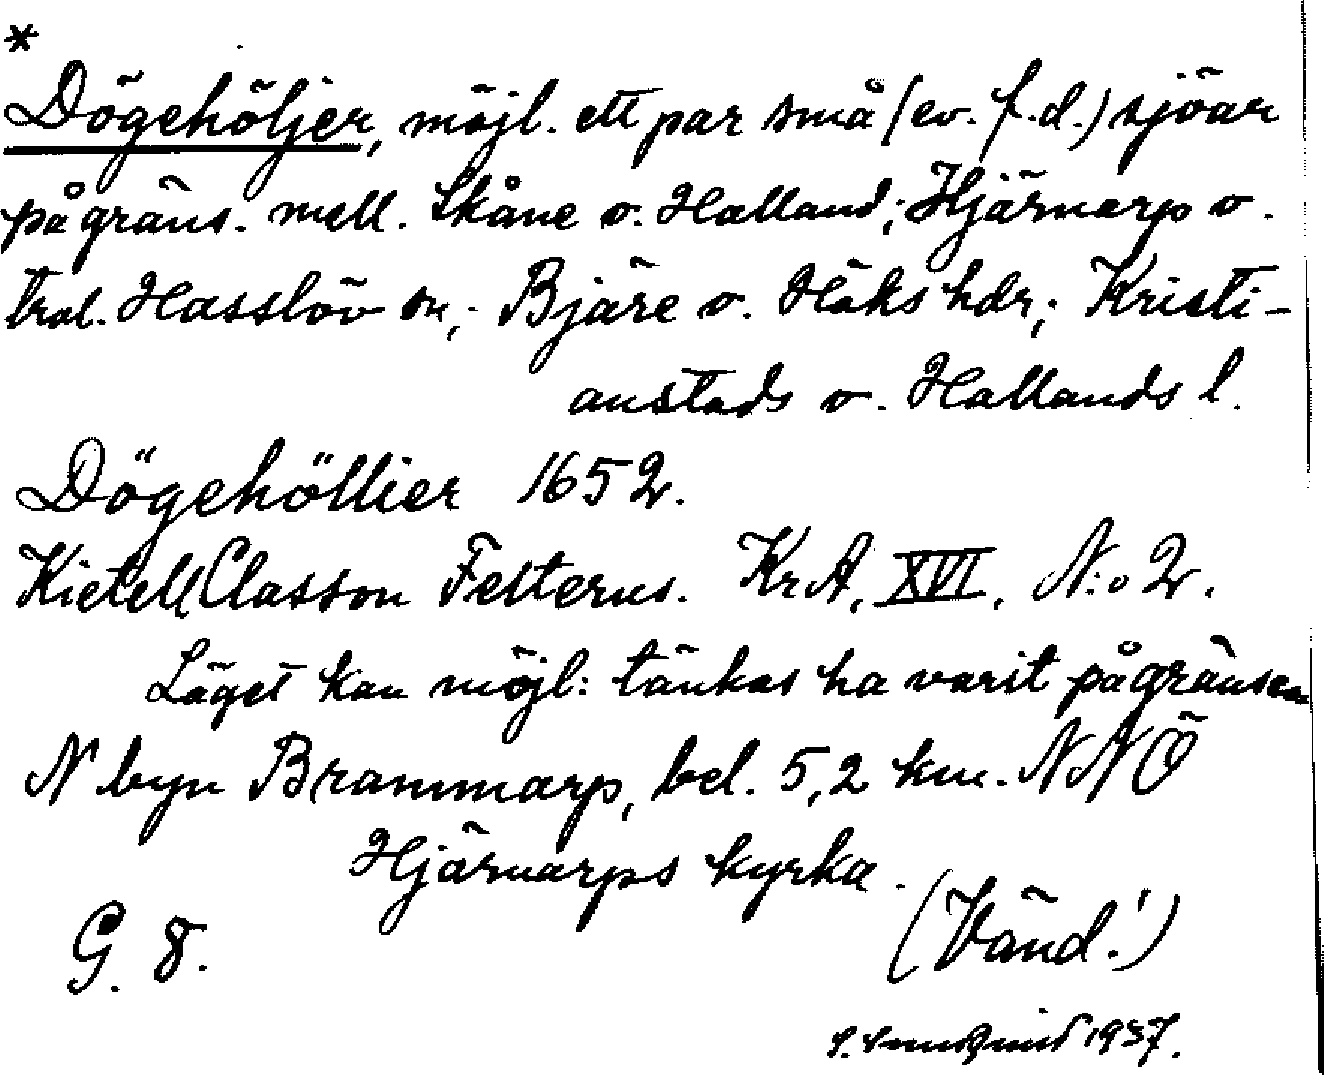 *
Dögehöljer, möjl. ett par små (ev. f.d.) sjöar
på gräns. mell. Skåne o. Halland; Hjärnarp o.
trol. Hasslöv sn; Bjäre o. Höks hdr; Kristi-
anstads o. Hallands l.
Dögehöllier 1652.
Kietell Classon Felterus. KrA, XVI, N:o 2.
Läget kan möjl: tänkas ha varit på gränsen
N byn Brammarp, bel. 5,2 km. NNÖ
Hjärnarps kyrka.
G. 8. (Vänd!)
1937.